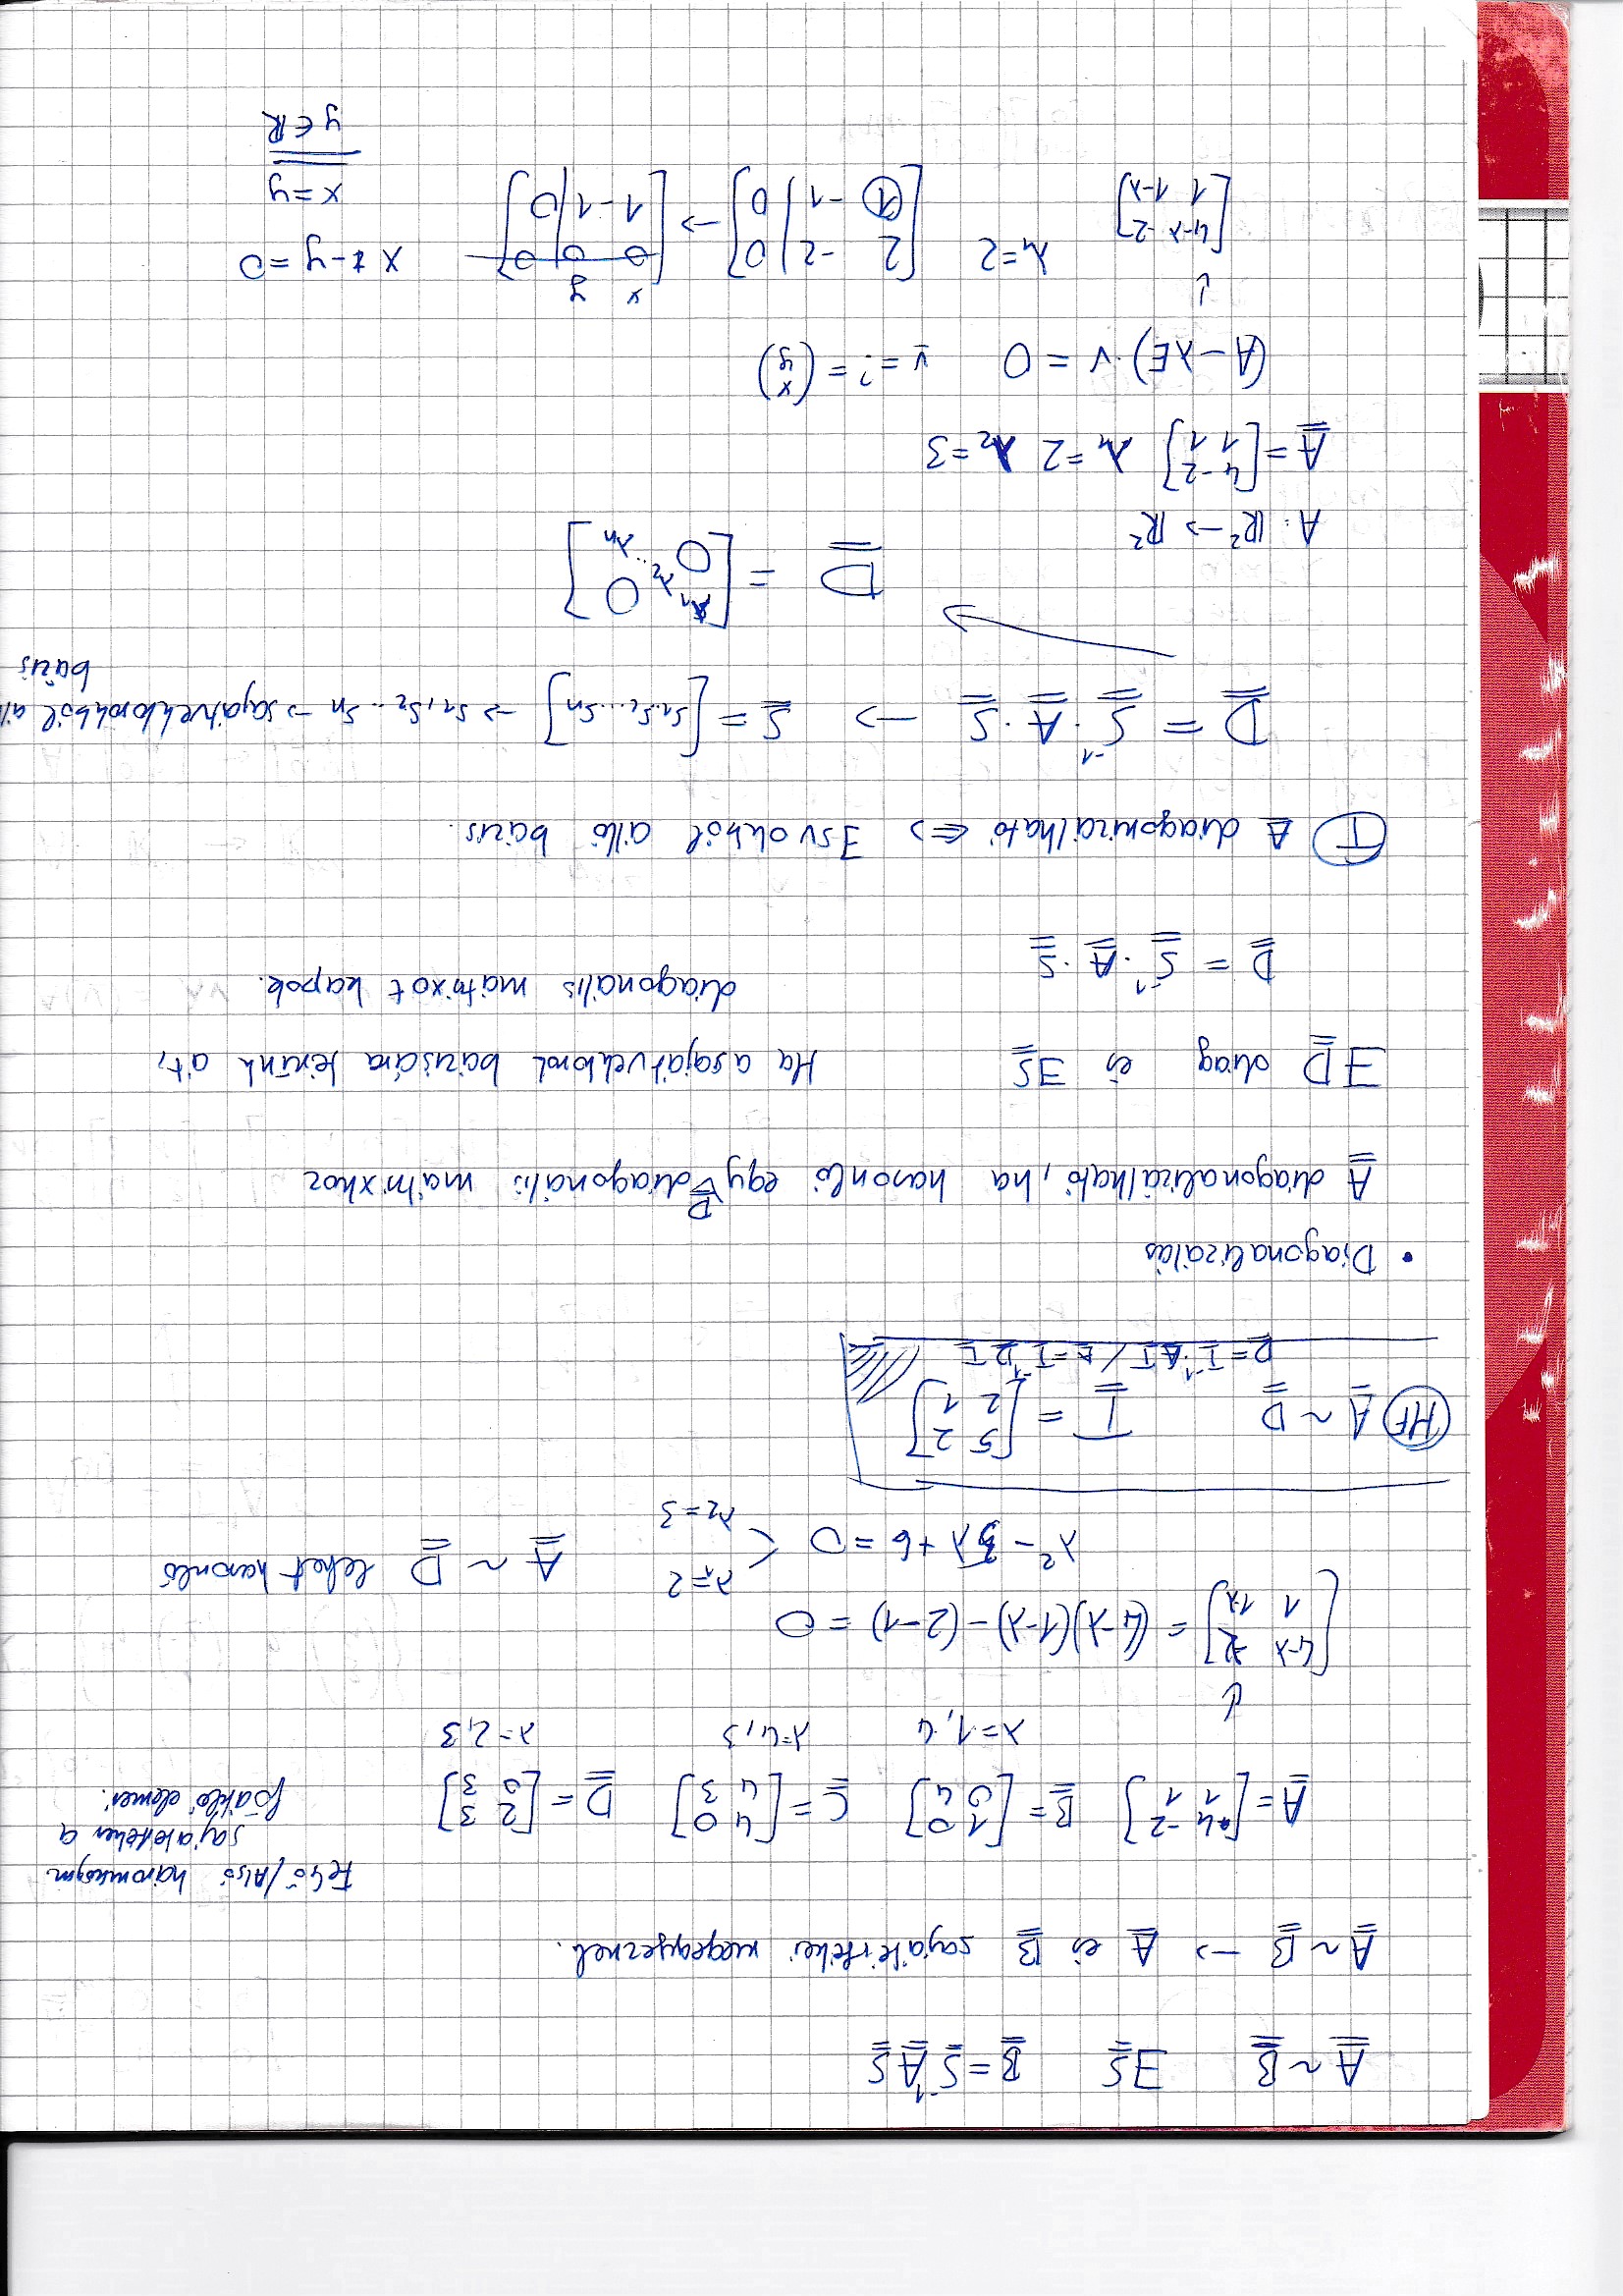 A ~ B ∃S B = S⁻¹ A S
A ~ B → A és B sajátértékei megegyeznek.
Felső/Alsó háromszögm.
sajátértékei a
főátló elemei.
A = [4 -2; 1 1] B = [1 0; 0 4] C = [4 0; 4 3] D = [2 3; 0 3]
λ=1,4 λ=4,3 λ=2,3
↓
[4-λ -2; 1 1-λ] = (4-λ)(1-λ) - (2-1) = 0
λ² - 5λ + 6 = 0 < λ₁=2 λ₂=3 A ~ D lehet hasonló
HF A ~ D T = [5 2; 2 1]
D = T⁻¹AT / A = T⁻¹DT
• Diagonalizálás
A diagonalizálható, ha hasonló egy D diagonális mátrixhoz
∃D diag és ∃S Ha a sajátvektorok bázisára térünk át,
diagonális mátrixot kapok.
D = S⁻¹ · A · S
T A diagonizálható ⇔ ∃ svokból álló bázis.
D = S⁻¹ · A · S → S = [s₁.s₂...sn] → s₁, s₂ .. sn → sajátvektorokból ál
bázis
D = [λ₁ 0 λ₂ .. 0 λn]
A: ℝ² → ℝ²
A = [4 -2; 1 1] λ₁=2 λ₂=3
(A-λE)·v = 0 v = ? = (x y)
↓
[4-λ -2; 1 1-λ] λ₁=2 [2 -2 | 0; 1 -1 | 0] → x y [0 0 | 0; 1 -1 | 0] x - y = 0
x = y
y ∈ ℝ